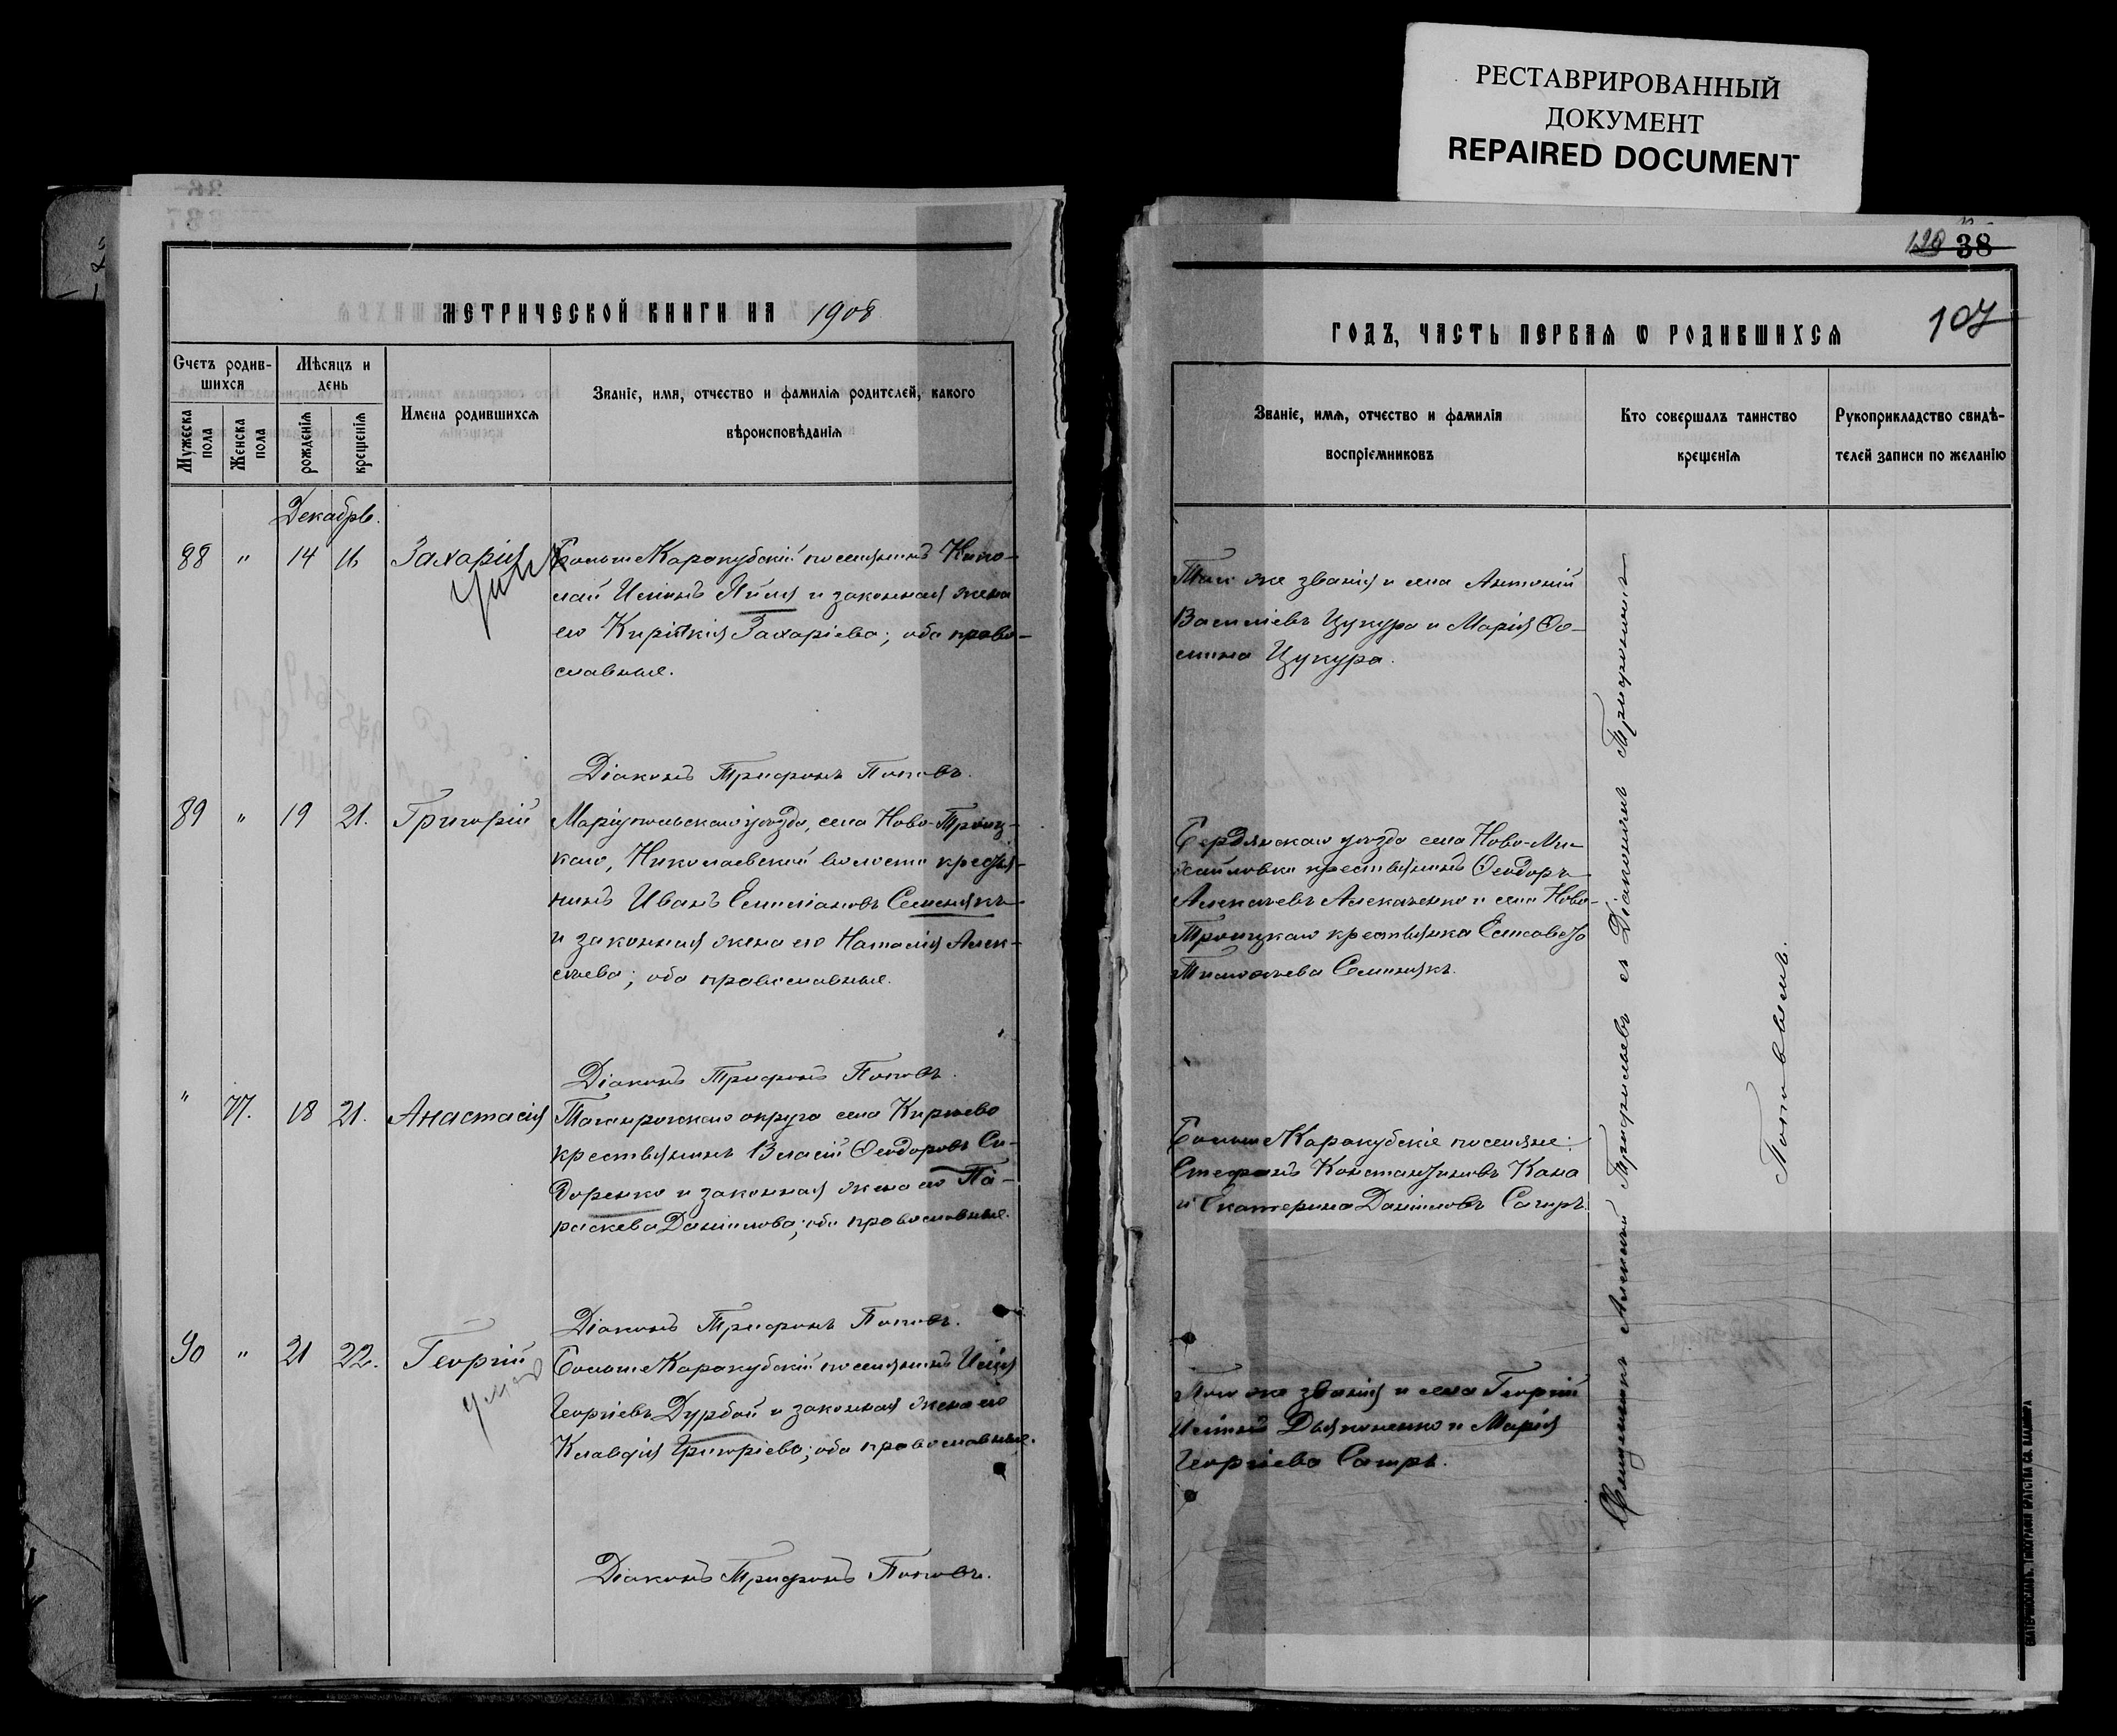 РЕСТАВРИРОВАННЫЙ
ДОКУМЕНТ
REPAIRED DOCUMENT
МЕТРИЧЕСКОЙ КНИГИ НА 1908
Счетъ родив-
шихся
Мужеска пола
Женска пола
Мѣсяцъ и
день
рожденія
крещенія
Имена родившихся
Званіе, имя, отчество и фамилія родителей, какого
вѣроисповѣданія
Декабрь.
88 " 14 16 Захарія Больше Каракубскій поселянинъ Нико-
лай и законная жена
его Захаріева; оба право-
славные.
Діаконъ Трифонъ Поповъ.
89 " 19 21. Григорій Маріупольскаго уѣзда, села Ново-Троиц-
каго, Николаевской волости крестья-
нинъ Иванъ Емиліановъ Семенякъ
и законная жена его Наталія Алек-
сѣева; оба православные.
Діаконъ Трифонъ Поповъ.
" 77. 18 21. Анастасія Таганрогскаго округа села Кирпево
крестьянинъ Власій Ѳеодоровъ Си-
доренко и законная жена его Па-
раскева Даніилова; оба православные.
Діаконъ Трифонъ Поповъ.
90 " 21 22. Георгій Больше Каракубскій поселянинъ Илія
умер
Георгіевъ Дурбай и законная жена его
Клавдія Григоріева; оба православные.
Діаконъ Трифонъ Поповъ.
120 38
107
ГОДЪ, ЧАСТЬ ПЕРВАЯ Ѡ РОДИВШИХСЯ
Званіе, имя, отчество и фамилія
воспріемниковъ
Кто совершалъ таинство
крещенія
Рукоприкладство свидѣ-
телей записи по желанію
Того же званія и села Антоній
Васильевъ Цукура и Марія Ѳо-
мина Цукура.
Бердянскаго уѣзда села Ново-Ми-
хайловки крестьянинъ Ѳеодоръ
Алексѣевъ Алексѣенко и села Ново-
Троицкаго крестьянка Елисавета
Тимоѳеева Семенякъ.
Больше Каракубскіе поселяне:
Стефанъ Константиновъ Кана
и Екатерина Даніиловъ Сагиръ.
Того же званія и села Георгій
Дьяконенко и Марія
Георгіева Сагиръ.
Священникъ Алексій съ Діакономъ Трифономъ
Поповымъ.